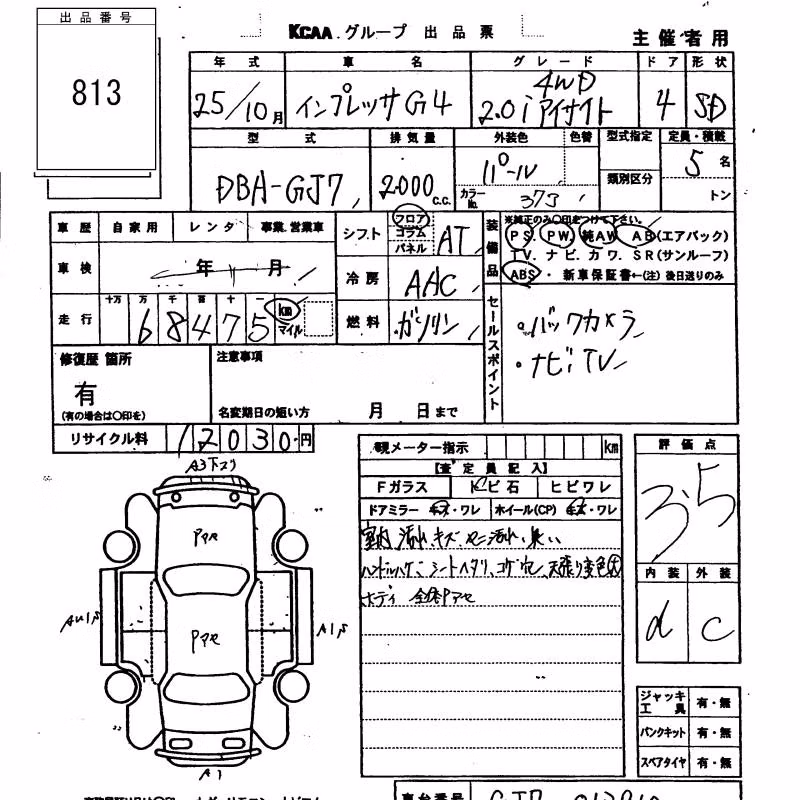 出品番号
813
KCAA グループ 出品票
主催者用
年式 車名 グレード ドア 形状
25/10月 インプレッサG4 4WD 2.0i アイサイト 4 SD
型式 排気量 外装色 色替 型式指定 定員・積載
DBA-GJ7 2000 c.c. パール 類別区分 5名
カラーNo. 37J トン
車歴 自家用 レンタ 事業.営業車
シフト フロア コラム パネル AT
装備品 ※純正のみ○印をつけて下さい。
PS. PW. 純AW AB(エアバック)
TV. ナビ. カワ. SR(サンルーフ)
ABS・新車保証書←(注)後日送りのみ
車検 年 月
冷房 AAC
走行 十万 万 千 百 十 一
68475 km マイル
燃料 ガソリン
セールスポイント
・バックカメラ
・ナビ TV
修復歴 箇所 注意事項
有
(有の場合は○印を)
名変期日の短い方 月 日まで
リサイクル料 12030円
現メーター指示 km
評価点
3.5
【査定員記入】
Fガラス トビ石 ヒビワレ
ドアミラー キズ・ワレ ホイール(CP) キズ・ワレ
室内 汚れ、キズ ヤニ汚れ、臭い
ハンドルハゲ、シートヘタリ、コゲ穴、天張り変色大
ボディ 全体Pアセ
A3下スリ
Pアセ
Pアセ
A1
内装 外装
d C
ジャッキ 工具 有・無
パンクキット 有・無
スペアタイヤ 有・無
車台番号 GJ7